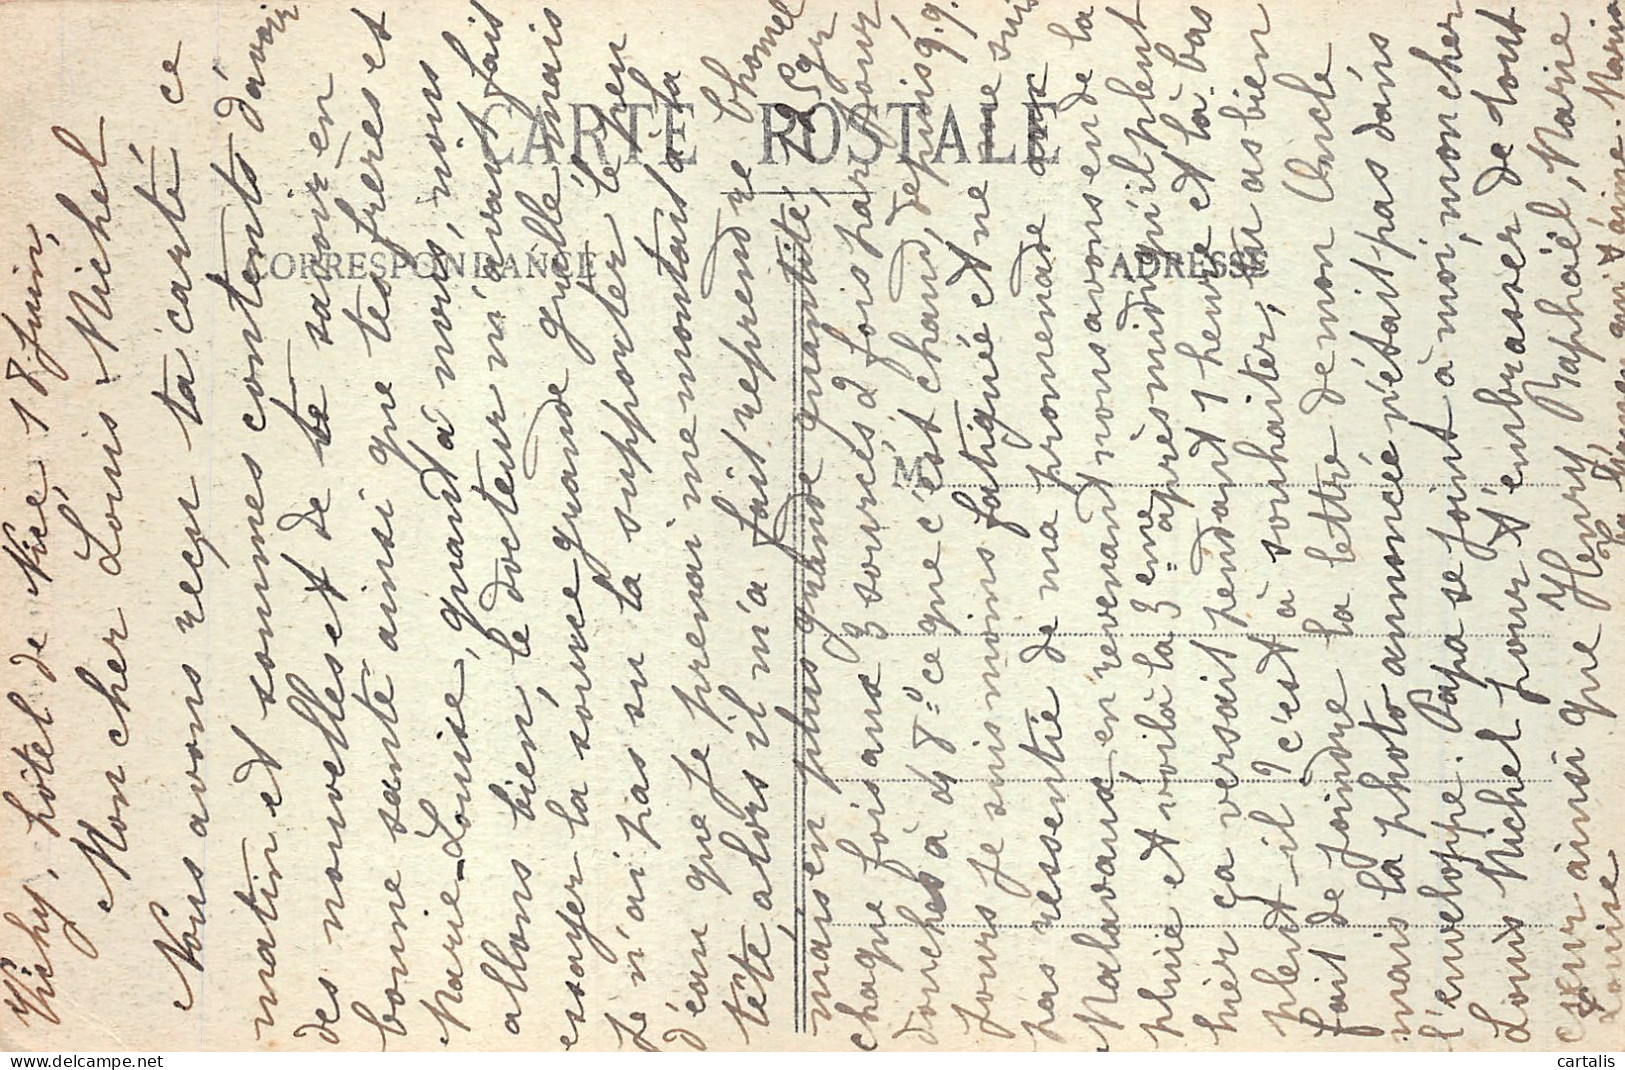 CARTE POSTALE
CORRESPONDANCE
ADRESSE
M
Vichy, hôtel de Nice 18 juin,
Mon cher Louis-Michel
Nous avons reçu ta carte ce
matin et sommes contents d'avoir
des nouvelles et de te savoir en
bonne santé ainsi que tes frères et
Marie-Louise, quant à nous, nous
allons bien, le docteur m'avait fait
essayer la source grande grille mais
je n'ai pas su la supporter le peu
d'eau que je prenai me montait à la
tête, alors il m'a fait reprendre Chomel
mais en plus grande quantité, 125 gr
chaque fois aux 3 sources 2 fois par jour
douches à d 8º ce que c'est chaud, depuis q.q.
jours je suis moins fatiguée et ne me suis
pas ressentie de ma promenade aux
Malavaux, en revenant nous avons eu de la
pluie et voilà la 3eme après midi qu'il pleut
hier ça versait pendant 1 heure et là-bas
pleut-il ? c'est à souhaiter, tu as bien
fait de joindre la lettre de mon Oncle
mais la photo annoncée n'était pas dans
l'enveloppe. Papa se joint à moi, mon cher
Louis Michel pour t'embrasser de tout
cœur ainsi que Henry, Raphaël, Marie
Louise
Ta maman qui t'aime. Maria
cartalis